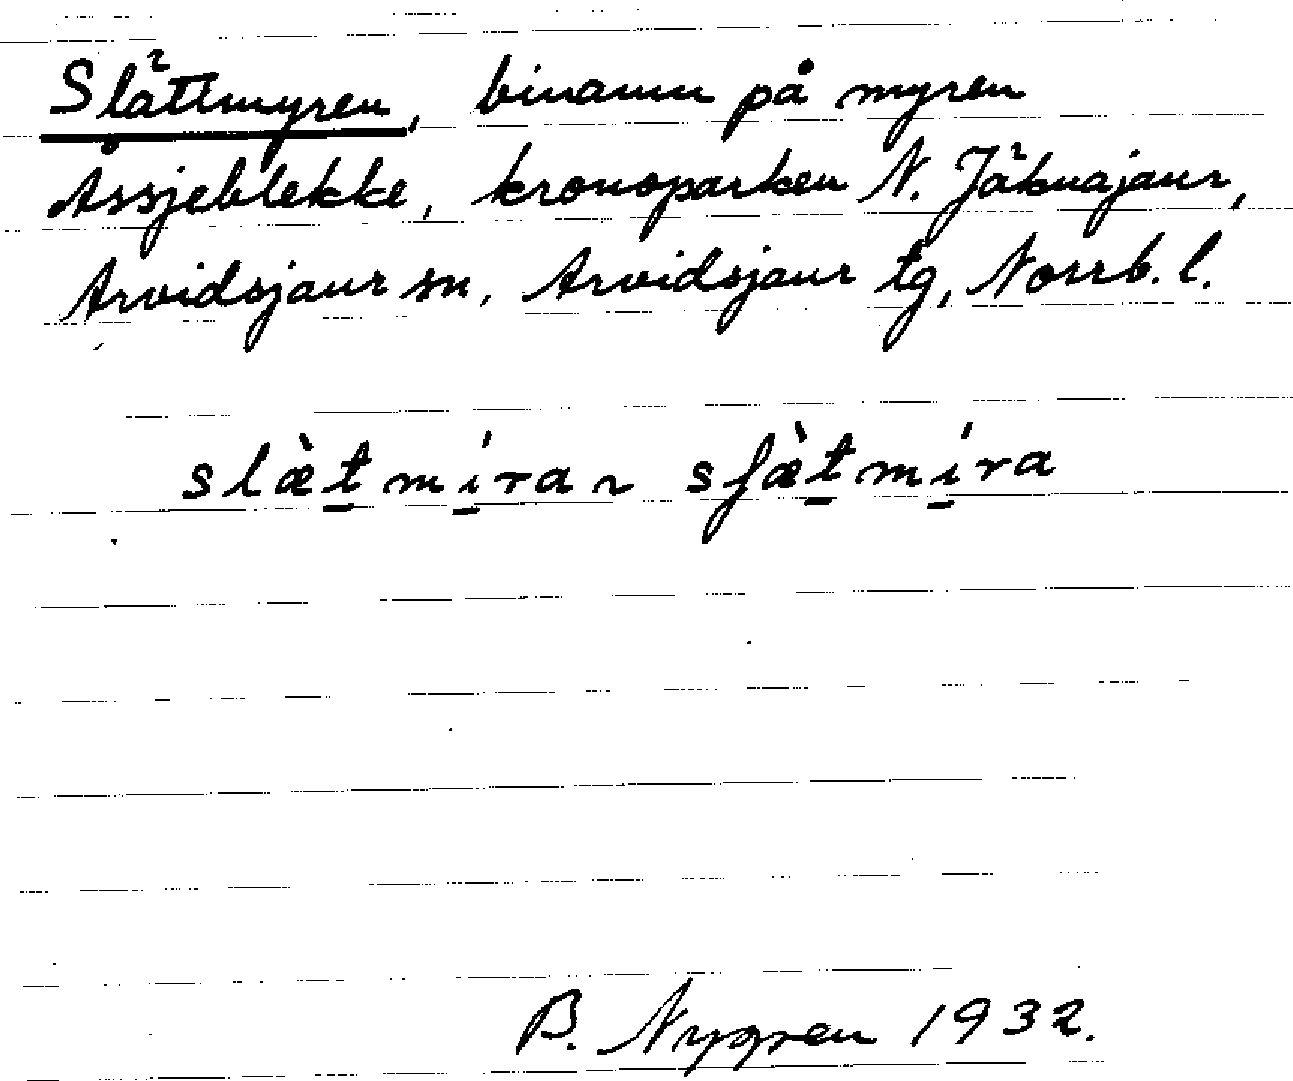 Slåttmyren, binamn på myren
Åssjeblekke, kronoparken N. Jäknajaur,
Arvidsjaur sn, Arvidsjaur tg, Norrb. l.
slæ̀t̠mí̠ra ~ sʃæ̀t̠mí̠ra
B. Nygren 1932.